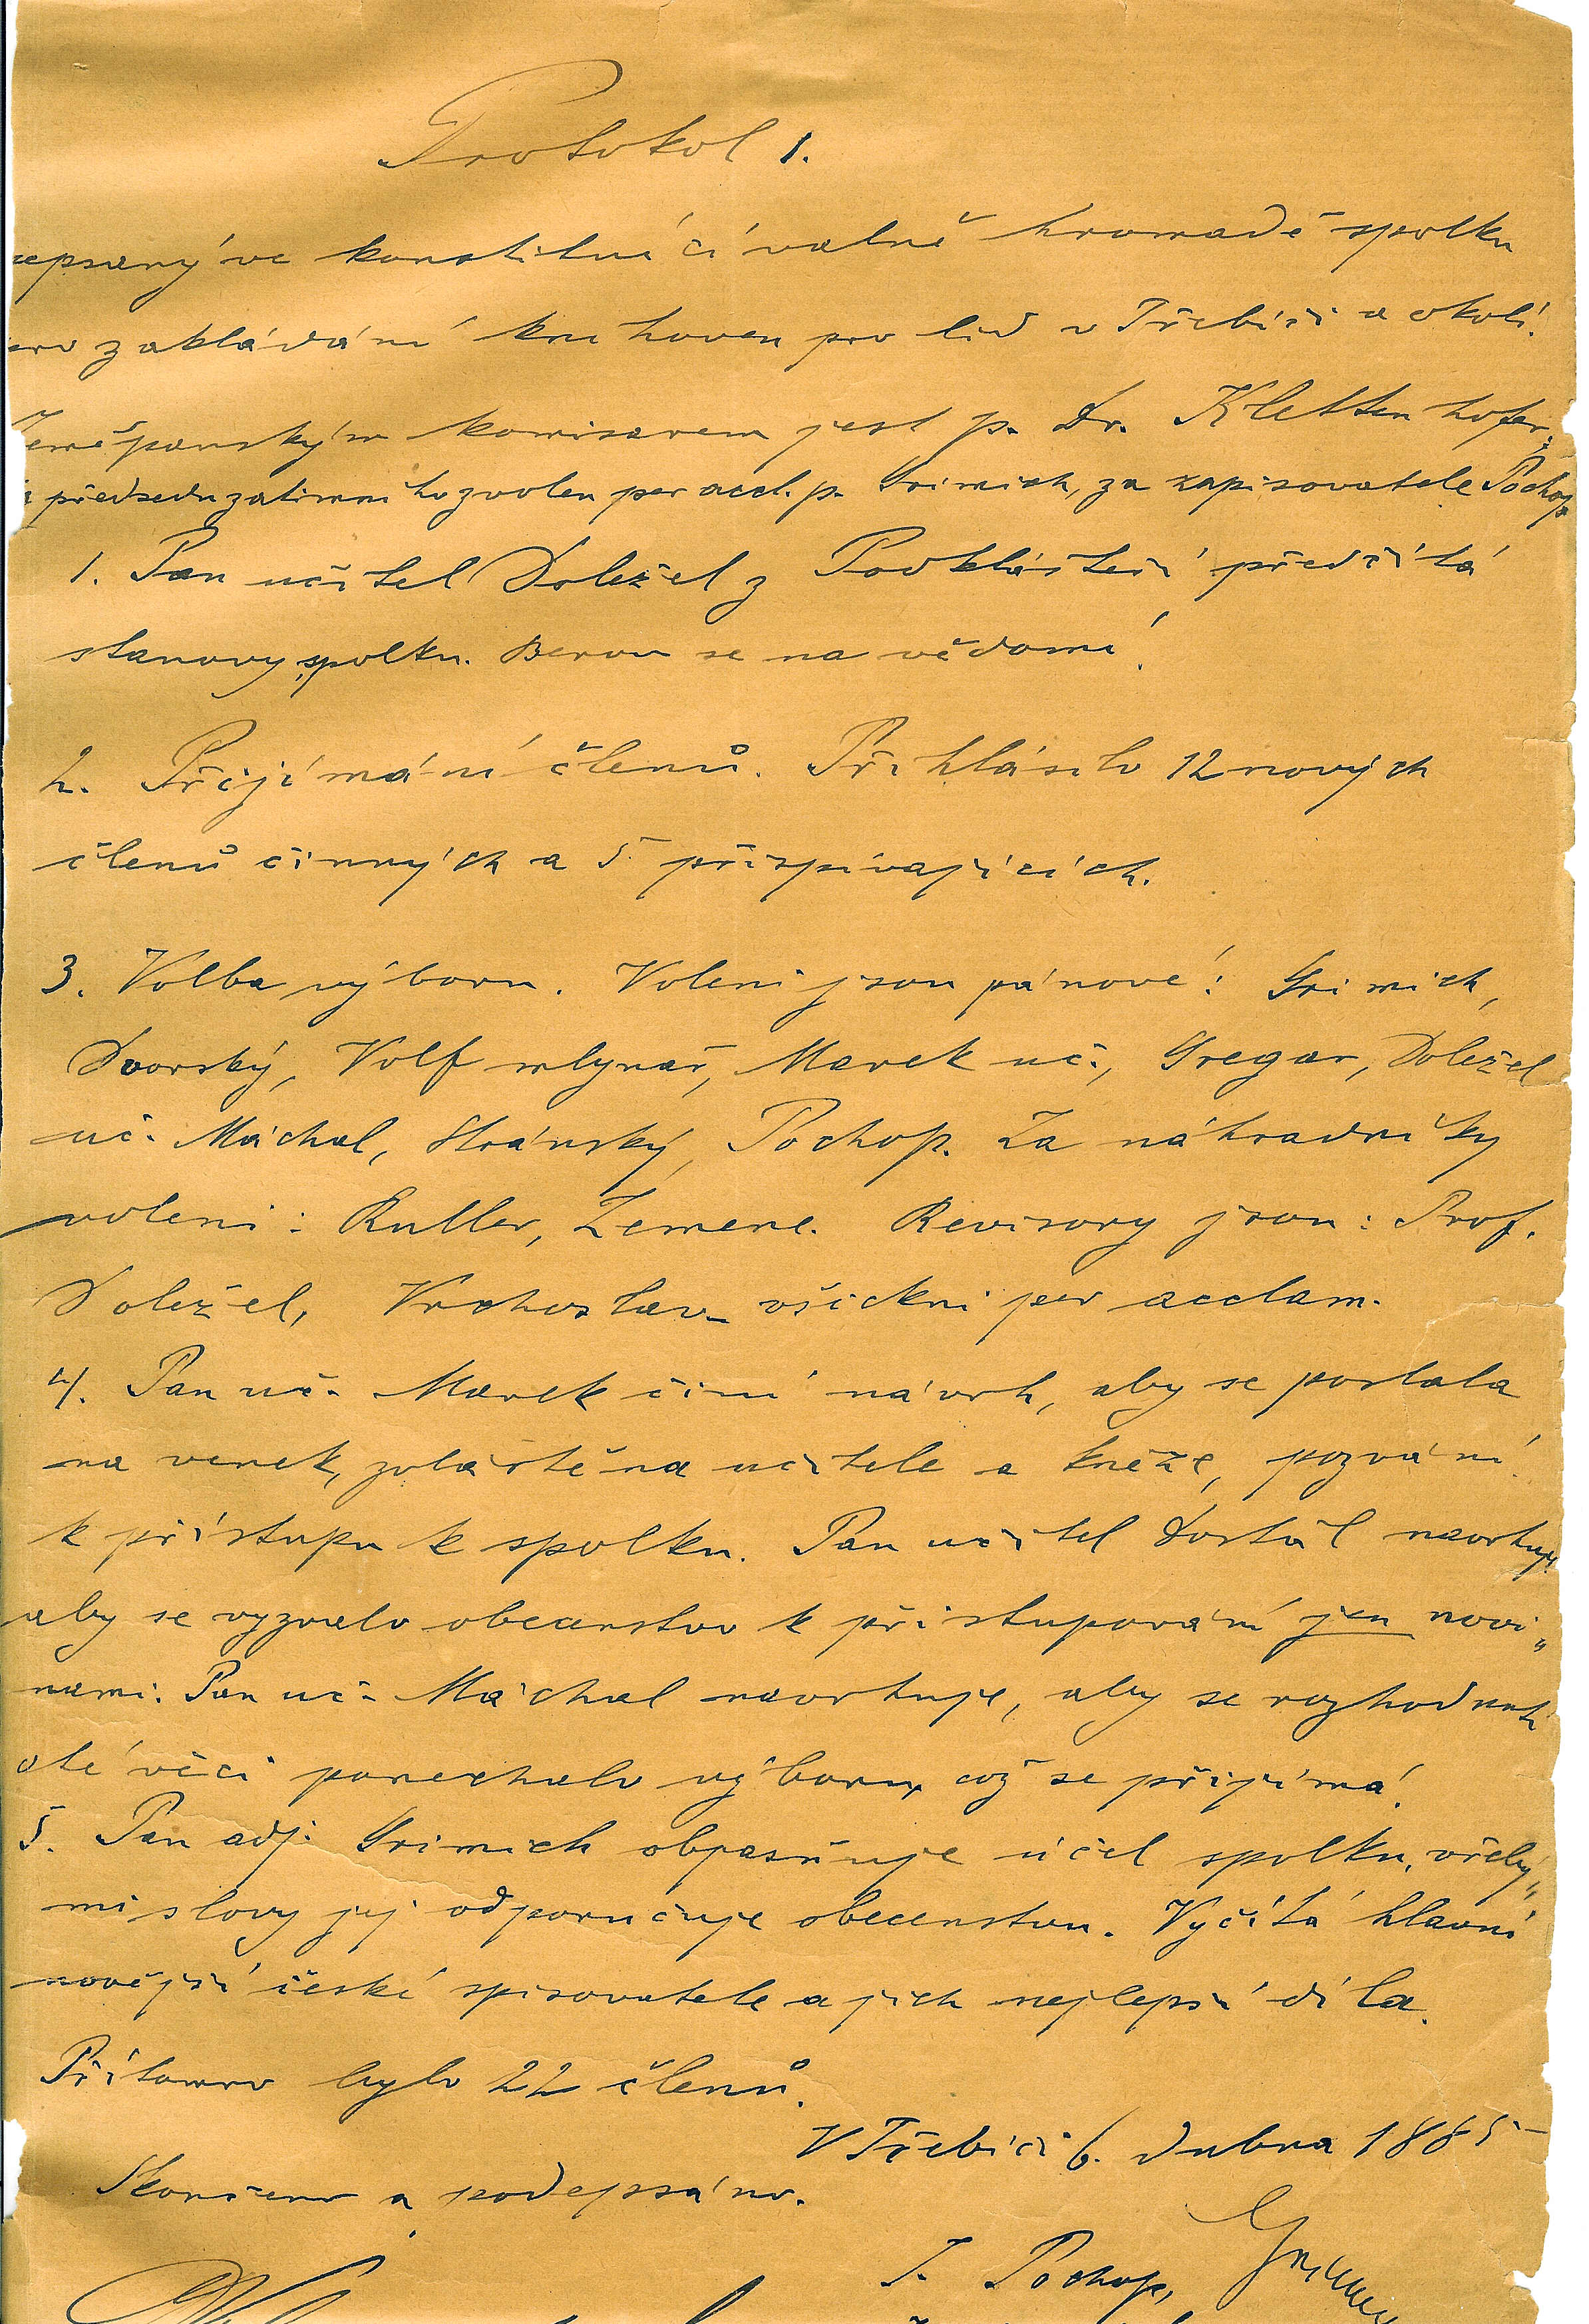 Protokol 1.
sepsaný ve konstituující valné hromadě spolku
pro zakládání knihoven pro lid v Třebíči a okolí.
Zeměpanským komisarem jest p. Dr. Klettenhofer,
za předsedu zatimního zvolen per accl. p. Grimich, za zapisovatele Pochop.
1. Pan učitel Doležel z Podklášteří předčítá
stanovy spolku. Berou se na vědomí.
2. Přijímání členů. Přihlásilo 12 nových
členů činných a 5 přispívajících.
3. Volba výboru. Voleni jsou pánové: Grimich,
Dvorský, Volf mlynář, Marek uč., Gregar, Doležel
uč. Máchal, Stránský, Pochop. Za náhradníky
voleni: Ruller, Zemene. Revisory jsou: Prof.
Doležel, Vrchoslav všickni per acclam.
4. Pan uč. Marek činí návrh, aby se poslala
na venek, zvláště na učitele a kněze, pozvání
k přístupu k spolku. Pan učitel Dostál navrhuje
aby se vyzvalo obecenstvo k přistupování jen novi„
nami. Pan uč. Máchal navrhuje, aby se rozhodnutí
o té věci ponechalo výboru, což se přijímá.
5. Pan adj. Grimich objasňuje účel spolku, vřelý„
mi slovy jej odporučuje obecenstvu. Vyčítá hlavní
novější české spisovatele a jich nejlepší díla.
Přítomno bylo 22 členů.
V Třebíči 6. dubna 1885
Skončeno a podepsáno.
J. Pochop,